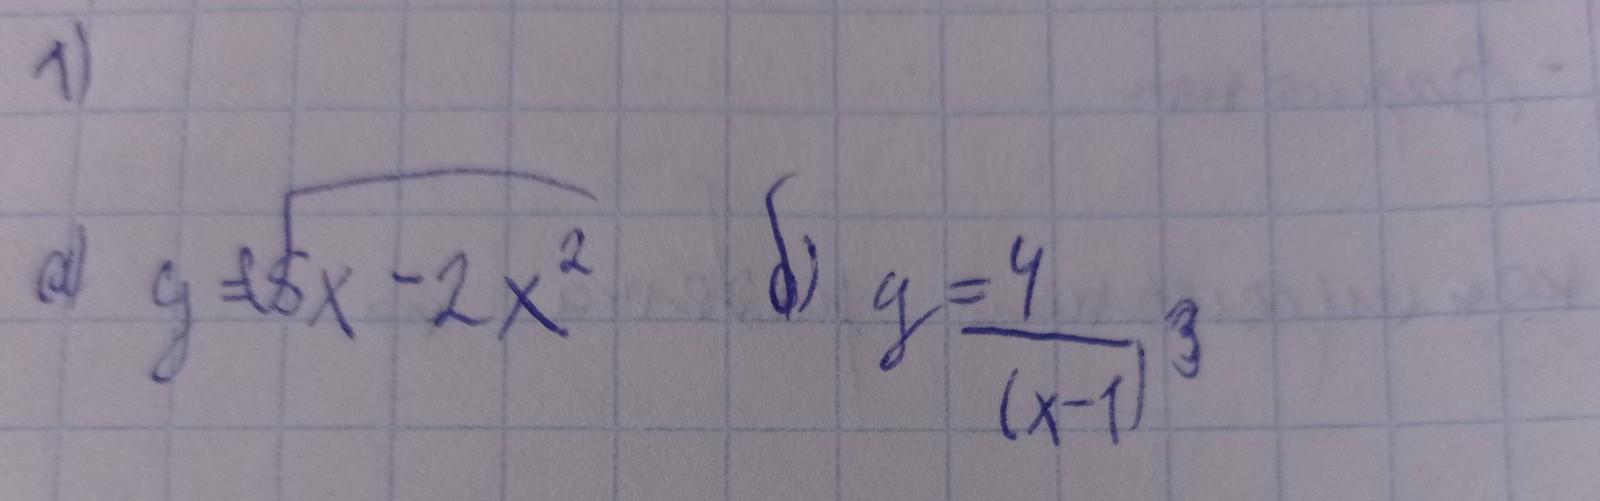 1)
а) y = √5x - 2x² б) y = 4/(x-1)³